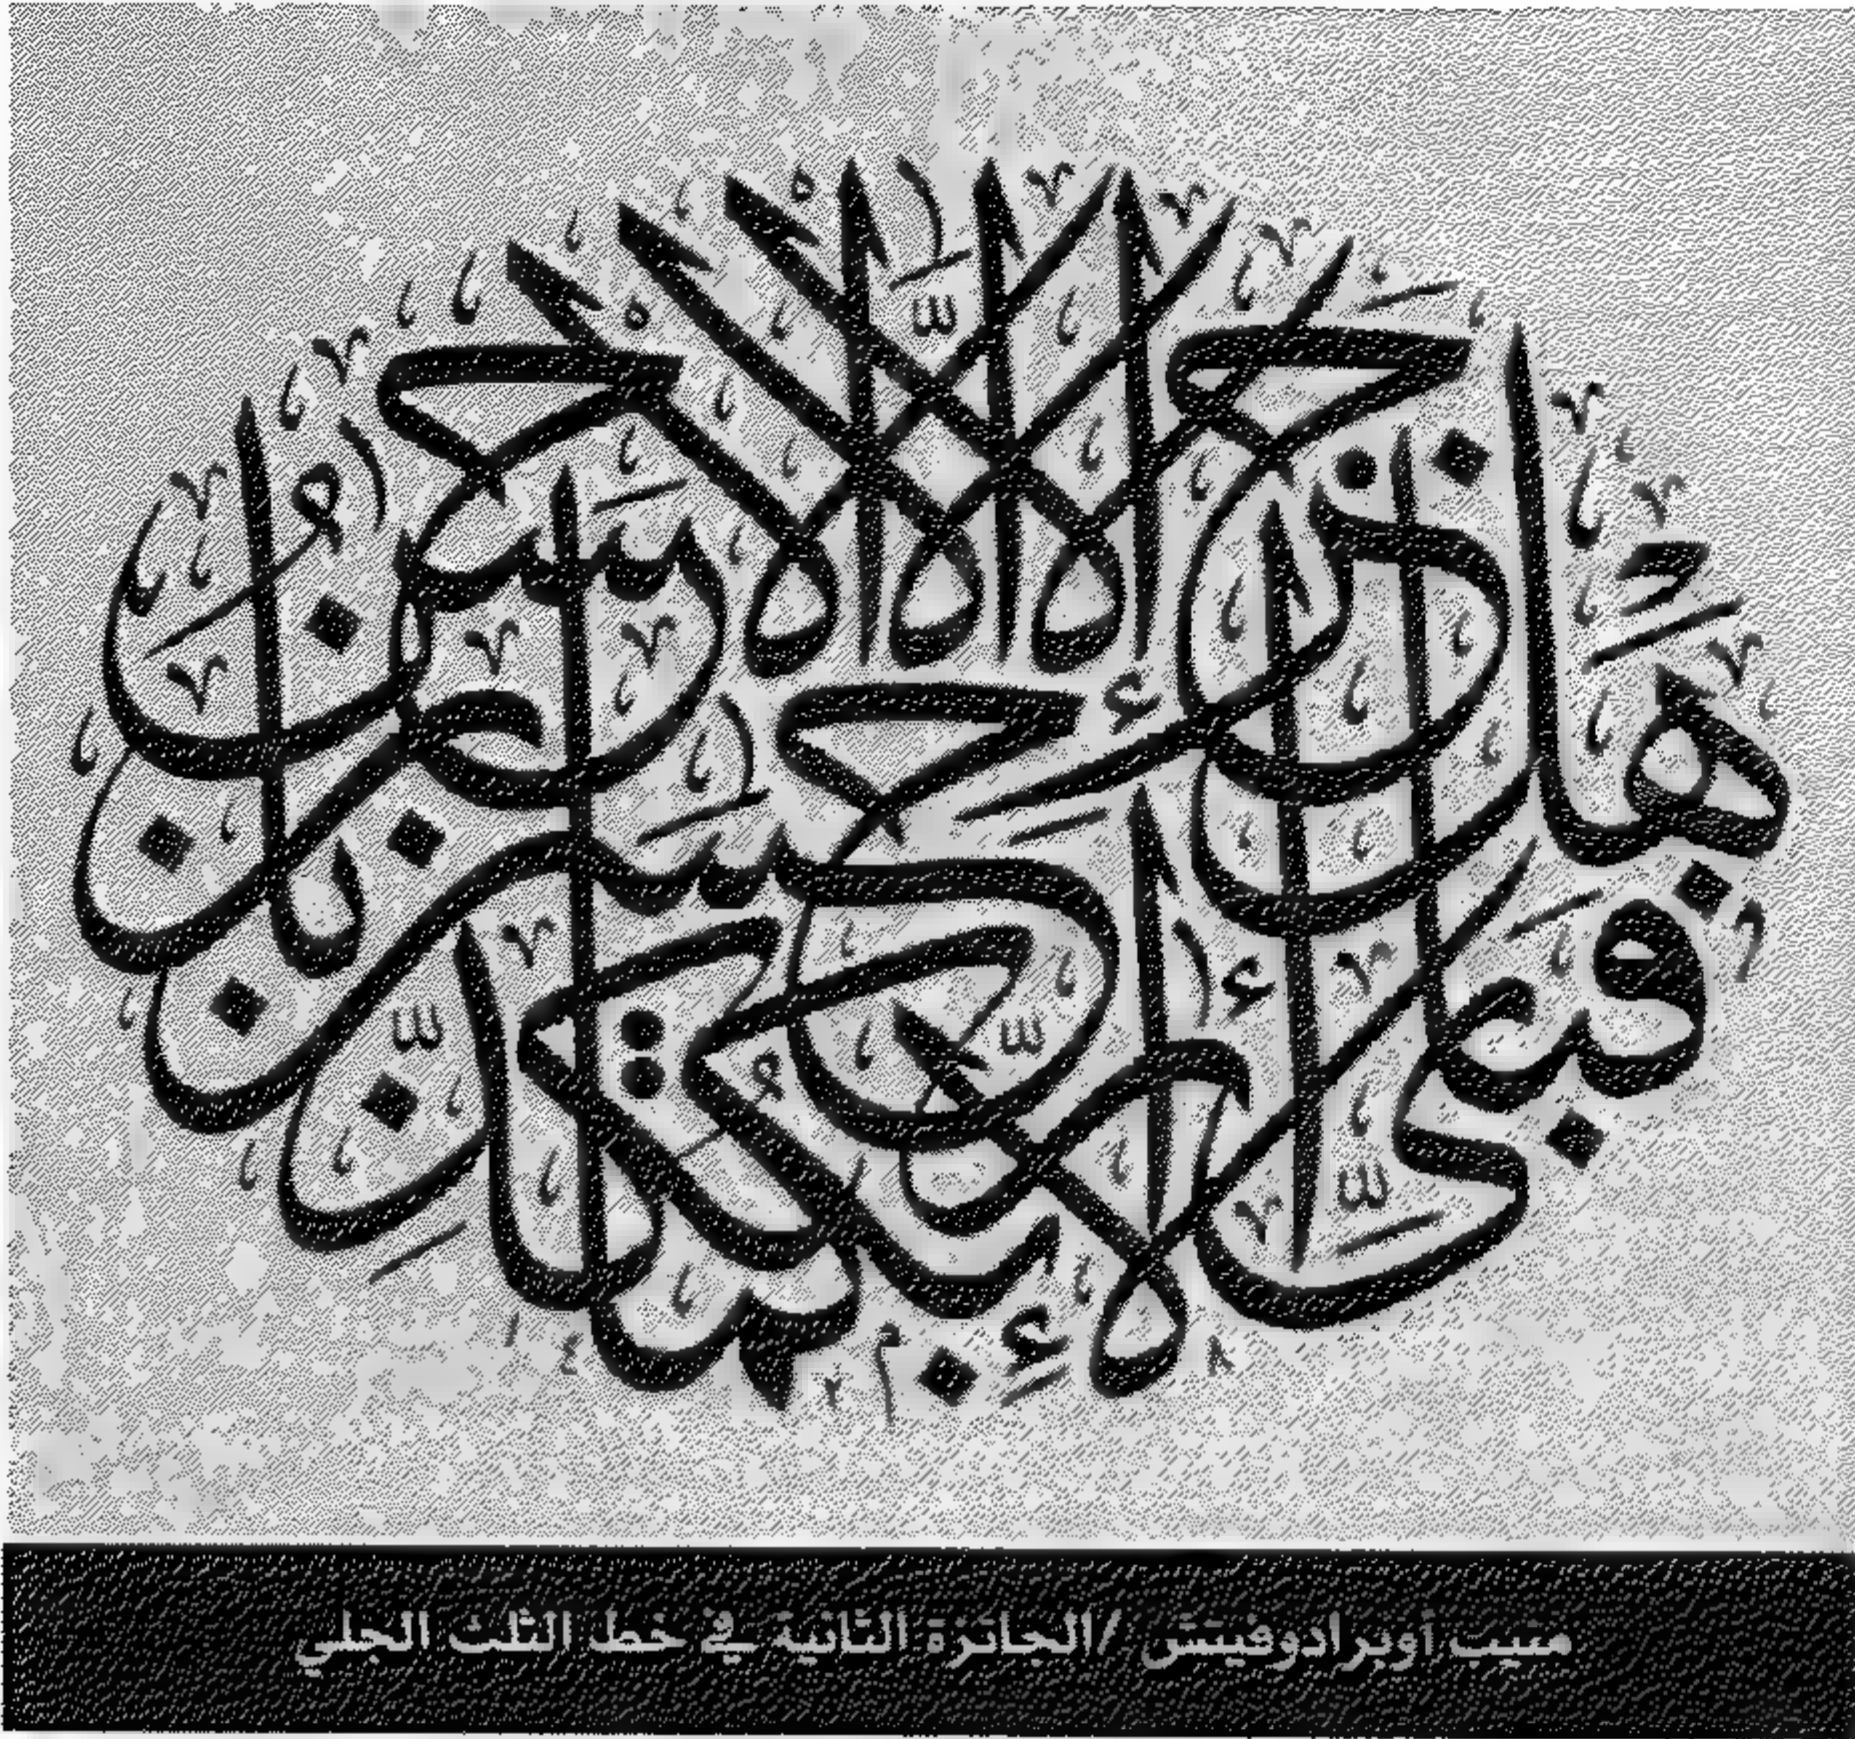 هَلْ جَزَاءُ الْإِحْسَانِ إِلَّا الْإِحْسَانُ
فَبِأَيِّ آلَاءِ رَبِّكُمَا تُكَذِّبَانِ
منيب أوبرادوفيتش /الجائزة الثانية في خط الثلث الجلي